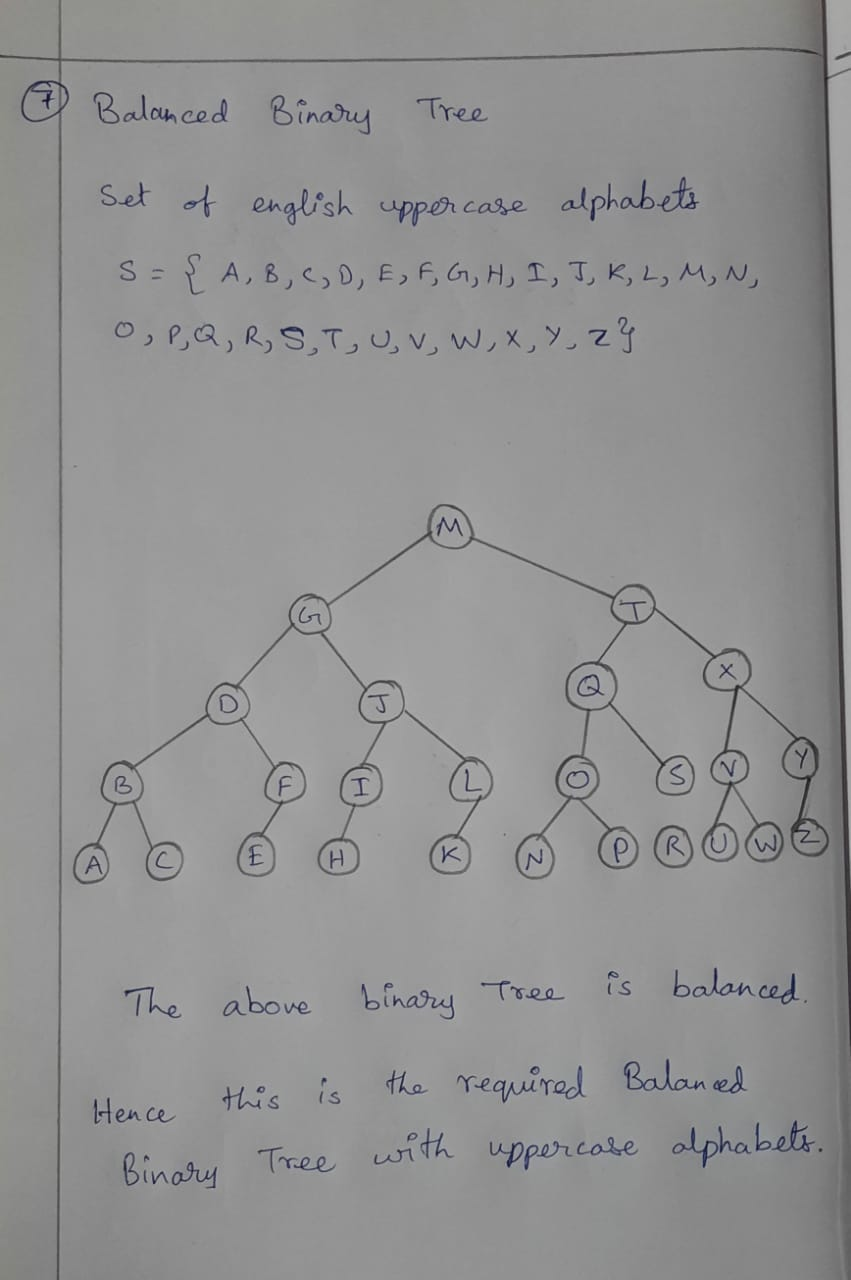 7 Balanced Binary Tree
Set of english uppercase alphabets
S = { A, B, C, D, E, F, G, H, I, J, K, L, M, N,
O, P, Q, R, S, T, U, V, W, X, Y, Z}
M
G T
D J Q X
B F I L O S V Y
A C E H K N P R U W Z
The above binary Tree is balanced.
Hence this is the required Balanced
Binary Tree with uppercase alphabets.